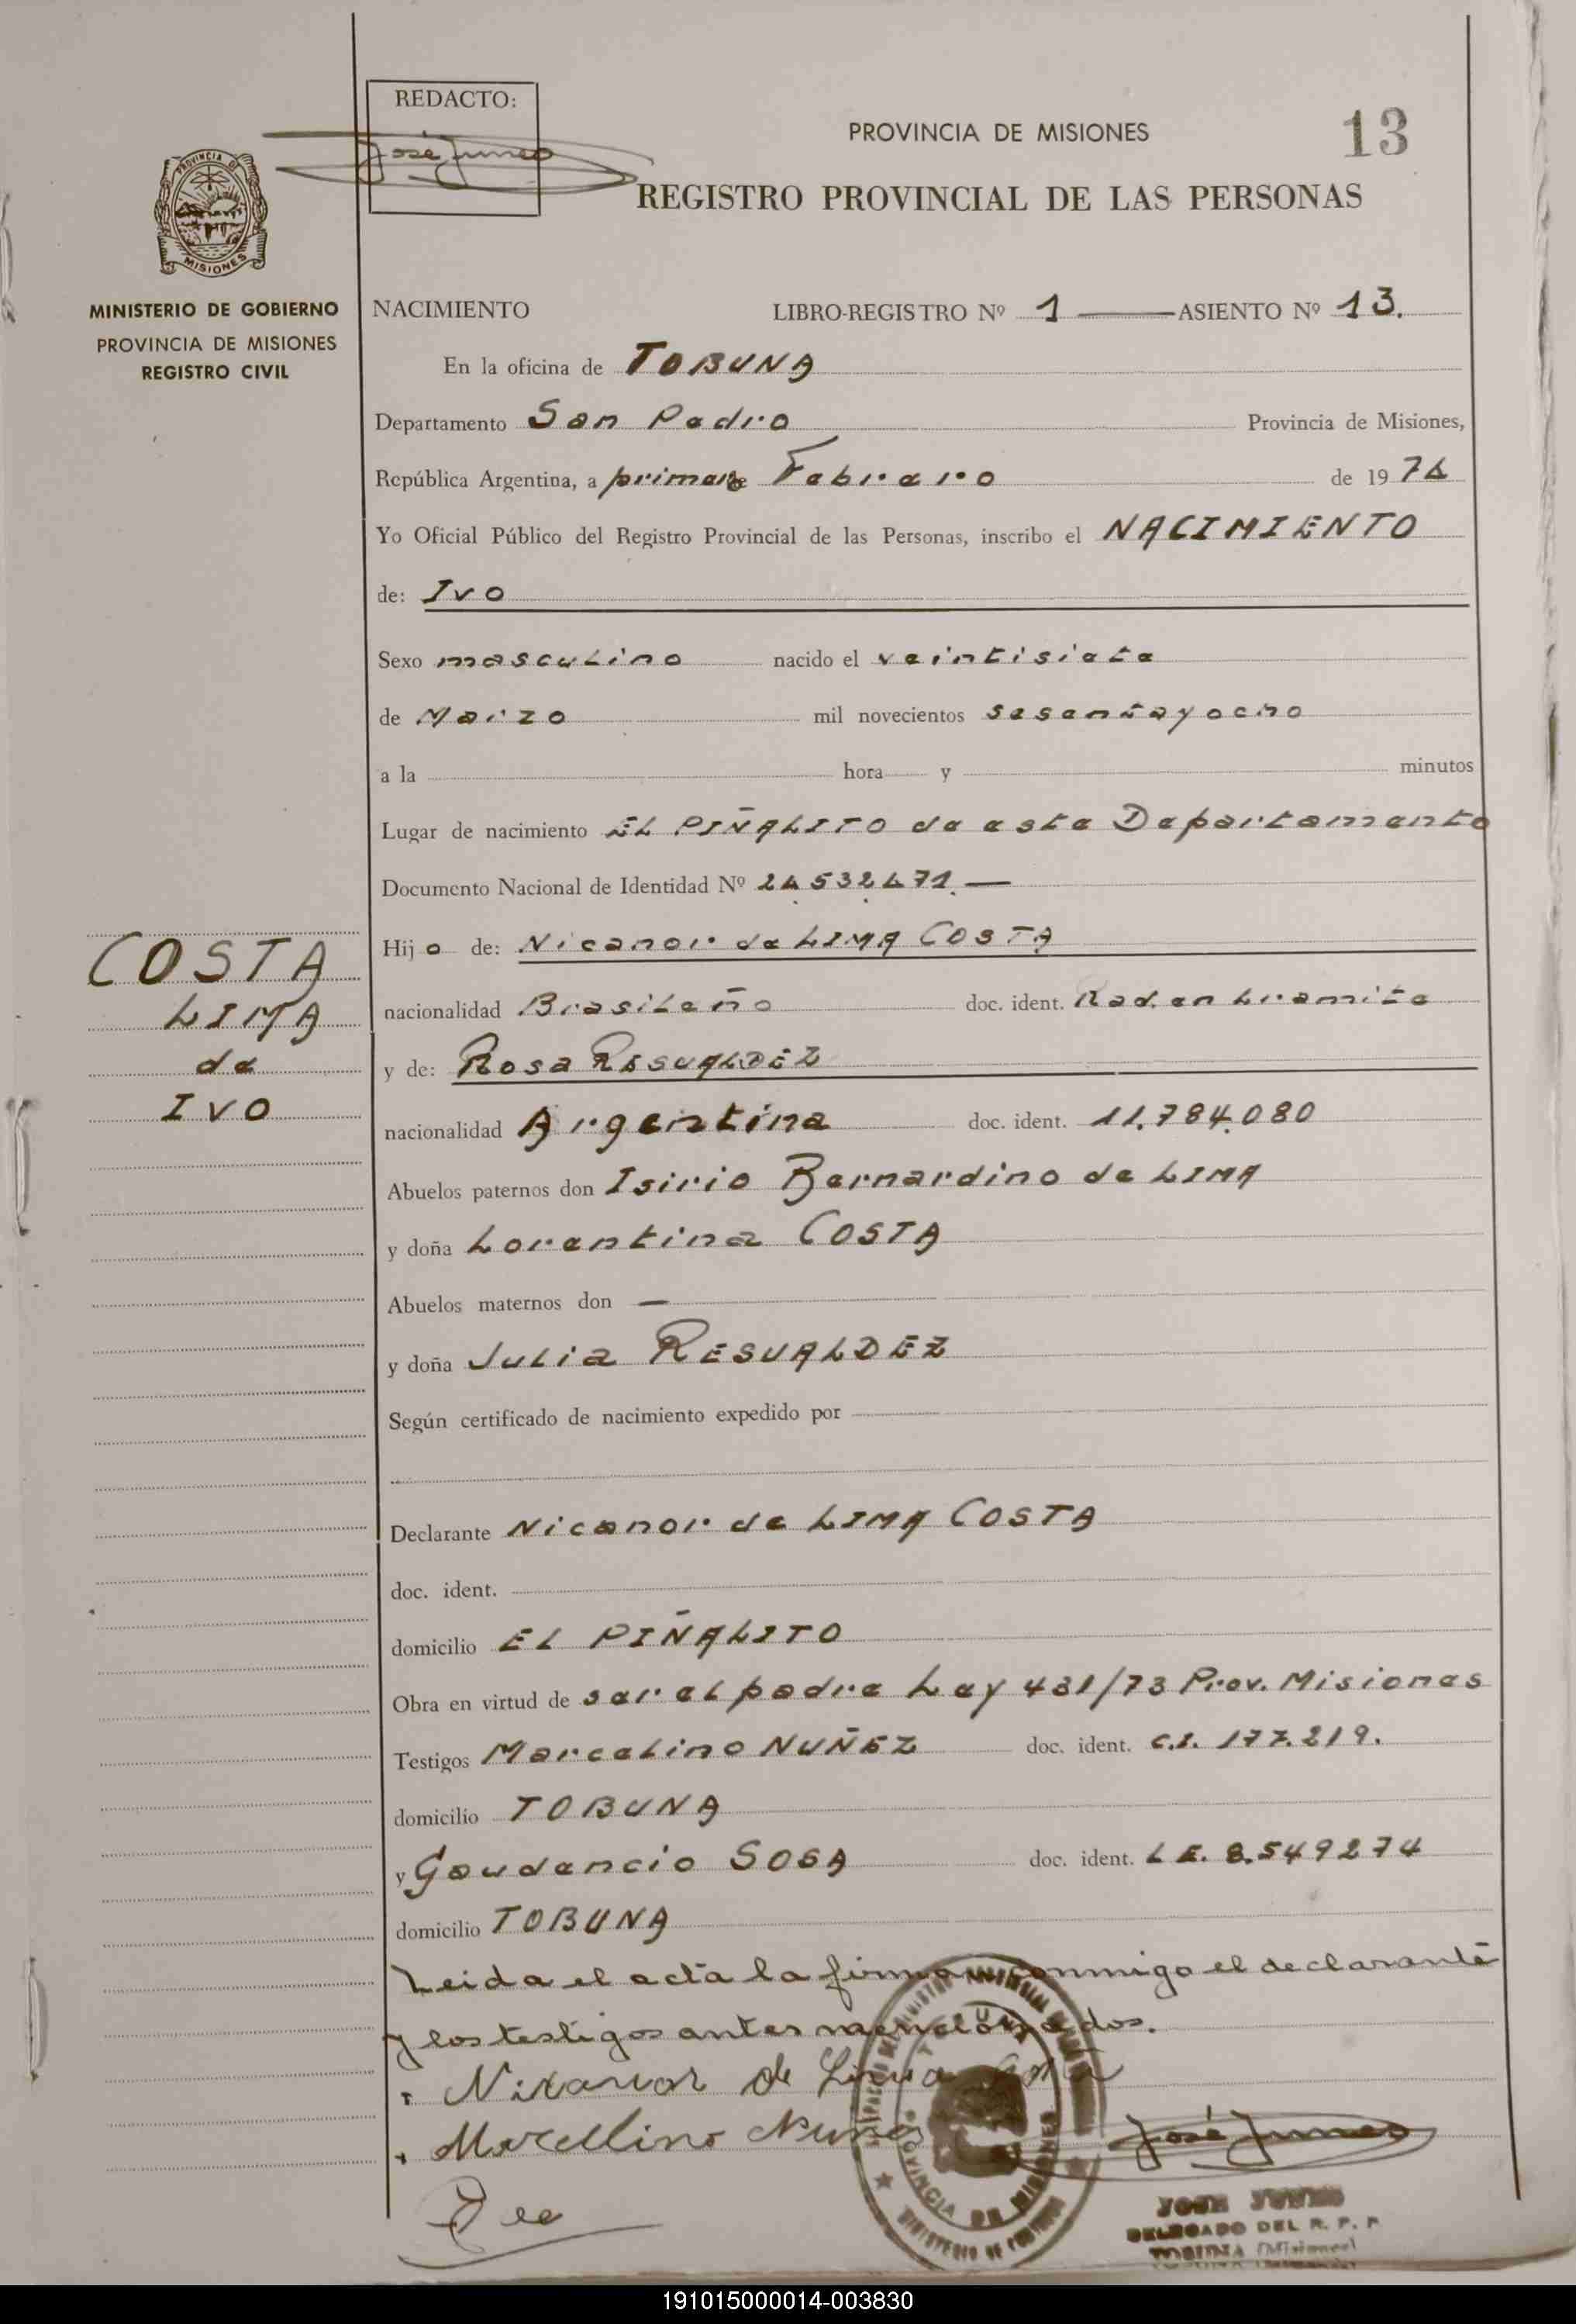 REDACTO:
José Juneo
PROVINCIA DE MISIONES
13
REGISTRO PROVINCIAL DE LAS PERSONAS
PROVINCIA DE
MISIONES
MINISTERIO DE GOBIERNO
PROVINCIA DE MISIONES
REGISTRO CIVIL
NACIMIENTO LIBRO-REGISTRO Nº 1 — ASIENTO Nº 13.
En la oficina de TOBUNA
Departamento San Pedro Provincia de Misiones,
República Argentina, a Febrero de 1974
Yo Oficial Público del Registro Provincial de las Personas, inscribo el NACIMIENTO
de: Ivo
Sexo masculino nacido el veintisiete
de Marzo mil novecientos sesentayocho
a la hora y minutos
Lugar de nacimiento EL PIÑALITO de este Departamento
Documento Nacional de Identidad Nº 24.532.471.—
Hijo de: Nicanor de LIMA COSTA
nacionalidad Brasileño doc. ident. Rad. en tramite
y de: Rosa RESUALDEZ
nacionalidad Argentina doc. ident. 11.784.080
Abuelos paternos don Isirio Bernardino de LIMA
y doña Lorentina COSTA
Abuelos maternos don —
y doña Julia RESUALDEZ
Según certificado de nacimiento expedido por
Declarante Nicanor de LIMA COSTA
doc. ident.
domicilio EL PIÑALITO
Obra en virtud de ser el padre Ley 431/73 Prov. Misiones
Testigos Marcelino NUÑEZ doc. ident. C.I. 177.219.
domicilio TOBUNA
y Gaudencio SOSA doc. ident. L E. 8.549274
domicilio TOBUNA
Leida el acta la firman conmigo el declarante
y los testigos antes mencionados.
Nixanor de Lima Costa
Marcellino Nunes
José Juneo
JOSE JUNEO
DELEGADO DEL R. P. P.
TOBUNA (Misiones)
PROVINCIA DE MISIONES
MINISTERIO DE GOBIERNO
COSTA
LIMA
de
IVO
191015000014-003830